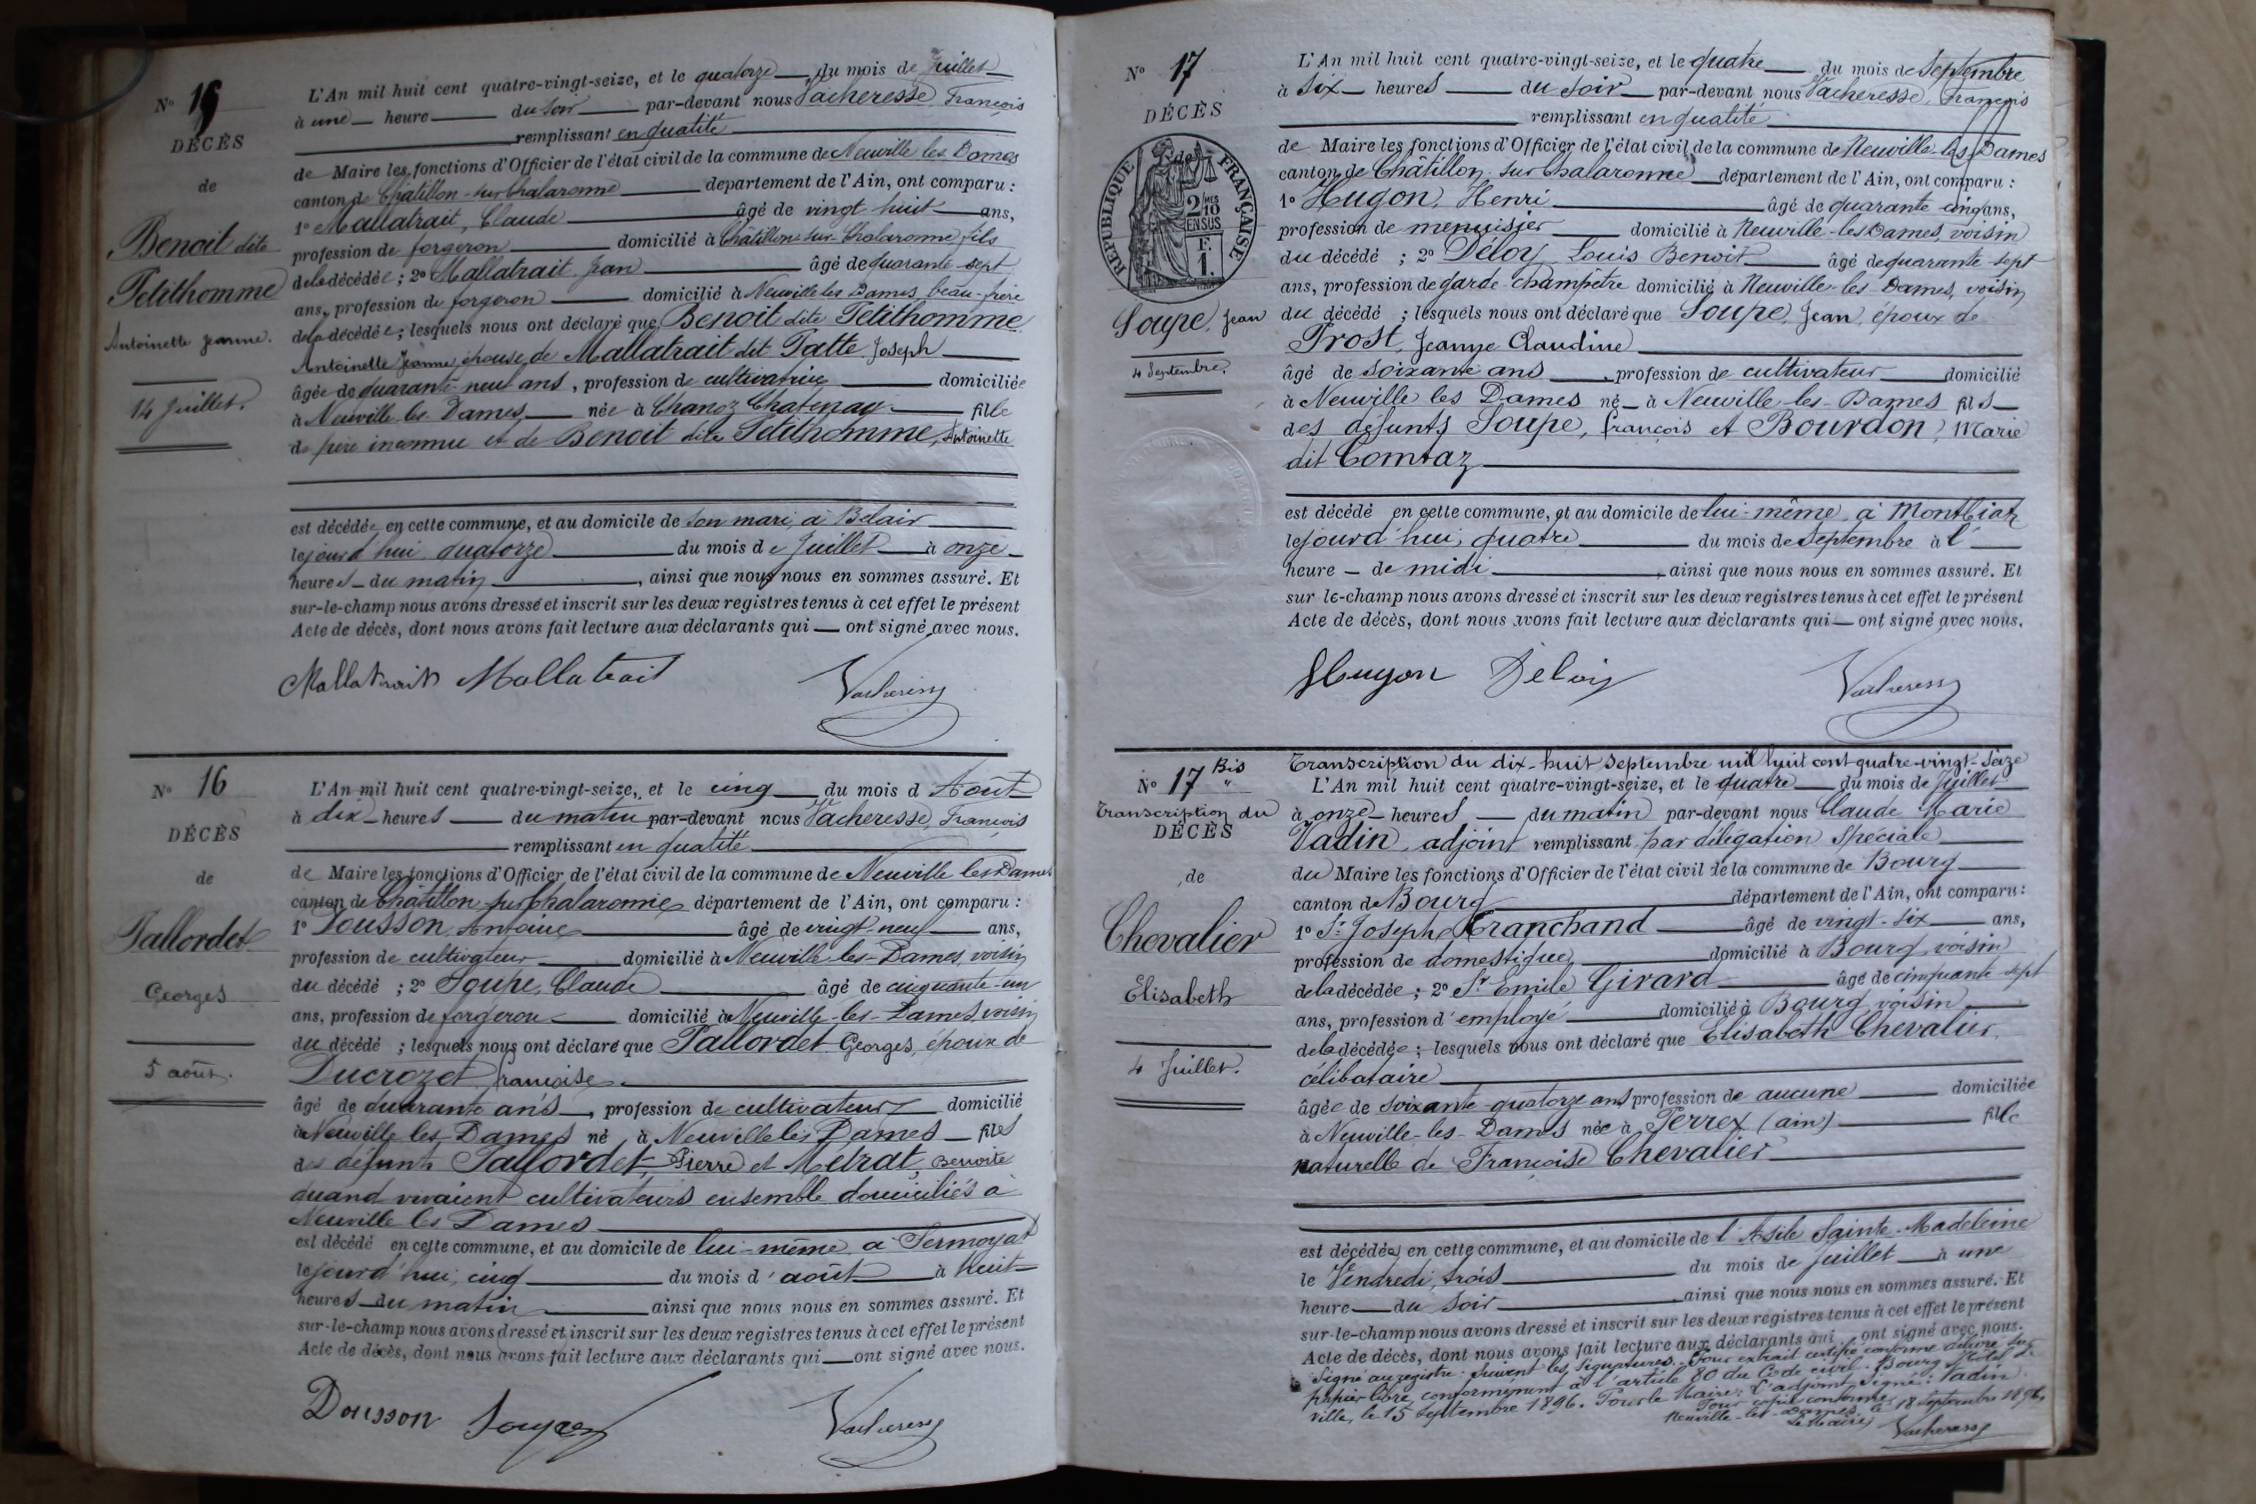 N° 15
DÉCÈS
de
Benoit dite
Petithomme
Antoinette Jeanne.
14 Juillet.
L'An mil huit cent quatre-vingt-seize, et le quatorze du mois de Juillet
à une heure du soir par-devant nous Vacheresse, François
remplissant en qualité
de Maire les fonctions d'Officier de l'état civil de la commune de Neuville les Dames
canton de Châtillon-sur-Chalaronne département de l'Ain, ont comparu :
1° Mallatrait, Claude âgé de vingt huit ans,
profession de forgeron domicilié à Châtillon-sur-Chalaronne fils
de la décédée ; 2° Mallatrait Jean âgé de quarante-sept
ans, profession de forgeron domicilié à Neuville les Dames, beau-frère
de la décédée ; lesquels nous ont déclaré que Benoit dite Petithomme
Antoinette Jeanne, épouse de Mallatrait dit Patte Joseph
âgée de quarante-neuf ans, profession de cultivatrice domiciliée
à Neuville-les-Dames, née à Chanoz Chatenay fille
de père inconnu et de Benoit dite Petithomme, Antoinette
est décédée en cette commune, et au domicile de son mari, à Belair
le jourd'hui quatorze du mois de Juillet à onze
heures du matin, ainsi que nous nous en sommes assuré. Et
sur-le-champ nous avons dressé et inscrit sur les deux registres tenus à cet effet le présent
Acte de décès, dont nous avons fait lecture aux déclarants qui ont signé avec nous.
Mallatrait Mallatrait Vacheresse
N° 16
DÉCÈS
de
Pallordet
Georges
5 août.
L'An mil huit cent quatre-vingt-seize, et le cinq du mois d'Août
à dix heures du matin par-devant nous Vacheresse, François
remplissant en qualité
de Maire les fonctions d'Officier de l'état civil de la commune de Neuville les Dames
canton de Châtillon sur Chalaronne département de l'Ain, ont comparu :
1° Dousson, Antoine âgé de vingt-neuf ans,
profession de cultivateur domicilié à Neuville-les-Dames, voisin
du décédé ; 2° Soupe, Claude âgé de cinquante-un
ans, profession de forgeron domicilié à Neuville-les-Dames, voisin
du décédé ; lesquels nous ont déclaré que Pallordet Georges, époux de
Ducrozet, françoise
âgé de quarante ans, profession de cultivateur domicilié
à Neuville les Dames né à Neuville les Dames fils
des défunts Pallordet, Pierre et Métrat, Benoite
quand vivaient cultivateurs ensemble domiciliés à
Neuville les Dames
est décédé en cette commune, et au domicile de lui-même, à Sermoyat
le jourd'hui, cinq du mois d'août à huit
heures du matin ainsi que nous nous en sommes assuré. Et
sur-le-champ nous avons dressé et inscrit sur les deux registres tenus à cet effet le présent
Acte de décès, dont nous avons fait lecture aux déclarants qui ont signé avec nous.
Dousson Soupe Vacheresse
N° 17
DÉCÈS
de
RÉPUBLIQUE FRANÇAISE
2/10 EN SUS
F. 1.
Soupe, Jean
4 Septembre.
L'An mil huit cent quatre-vingt-seize, et le quatre du mois de Septembre
à six heures du soir par-devant nous Vacheresse, François
remplissant en qualité
de Maire les fonctions d'Officier de l'état civil de la commune de Neuville-les-Dames
canton de Châtillon sur Chalaronne département de l'Ain, ont comparu :
1° Hugon, Henri âgé de quarante cinq ans,
profession de menuisier domicilié à Neuville-les-Dames, voisin
du décédé ; 2° Déloy, Louis Benoit âgé de quarante sept
ans, profession de garde-champêtre domicilié à Neuville-les-Dames, voisin
du décédé ; lesquels nous ont déclaré que Soupe, Jean, époux de
Prost, Jeanne Claudine
âgé de soixante ans, profession de cultivateur domicilié
à Neuville les Dames né à Neuville-les-Dames fils
des défunts Soupe, françois et Bourdon, Marie
dit Comtaz
est décédé en cette commune, et au domicile de lui-même, à Montbiaz
le jourd'hui, quatre du mois de Septembre à l'
heure de midi, ainsi que nous nous en sommes assuré. Et
sur le-champ nous avons dressé et inscrit sur les deux registres tenus à cet effet le présent
Acte de décès, dont nous avons fait lecture aux déclarants qui ont signé avec nous.
Hugon Deloy Vacheresse
N° 17 Bis
Transcription du
DÉCÈS
de
Chevalier
Elisabeth
4 Juillet.
Transcription du dix-huit Septembre mil huit cent quatre-vingt-seize
L'An mil huit cent quatre-vingt-seize, et le quatre du mois de Juillet
à onze heures du matin par-devant nous Claude Marie
Vadin, adjoint remplissant par délégation Spéciale
du Maire les fonctions d'Officier de l'état civil de la commune de Bourg
canton de Bourg département de l'Ain, ont comparu :
1° Sr Joseph Tranchand âgé de vingt-six ans,
profession de domestique domicilié à Bourg, voisin
de la décédée ; 2° Sr Emile Girard âgé de cinquante sept
ans, profession d'employé domicilié à Bourg voisin
de la décédée ; lesquels nous ont déclaré que Elisabeth Chevalier,
célibataire
âgée de soixante-quatorze ans profession de aucune domiciliée
à Neuville-les-Dames née à Perrex (ain) fille
naturelle de Françoise Chevalier
est décédée en cette commune, et au domicile de l'Asile Sainte-Madeleine
le Vendredi, trois du mois de juillet à une
heure du soir ainsi que nous nous en sommes assuré. Et
sur-le-champ nous avons dressé et inscrit sur les deux registres tenus à cet effet le présent
Acte de décès, dont nous avons fait lecture aux déclarants qui ont signé avec nous.
Signé au registre : Suivent les signatures. Pour extrait certifié conforme délivré sur
papier libre conformément à l'article 80 du Code civil. Bourg Hôtel de
ville, le 15 septembre 1896. Pour le Maire : L'adjoint, Signé : Vadin
Pour copie conforme
Neuville-les-Dames le 18 Septembre 1896,
Le Maire,
Vacheresse